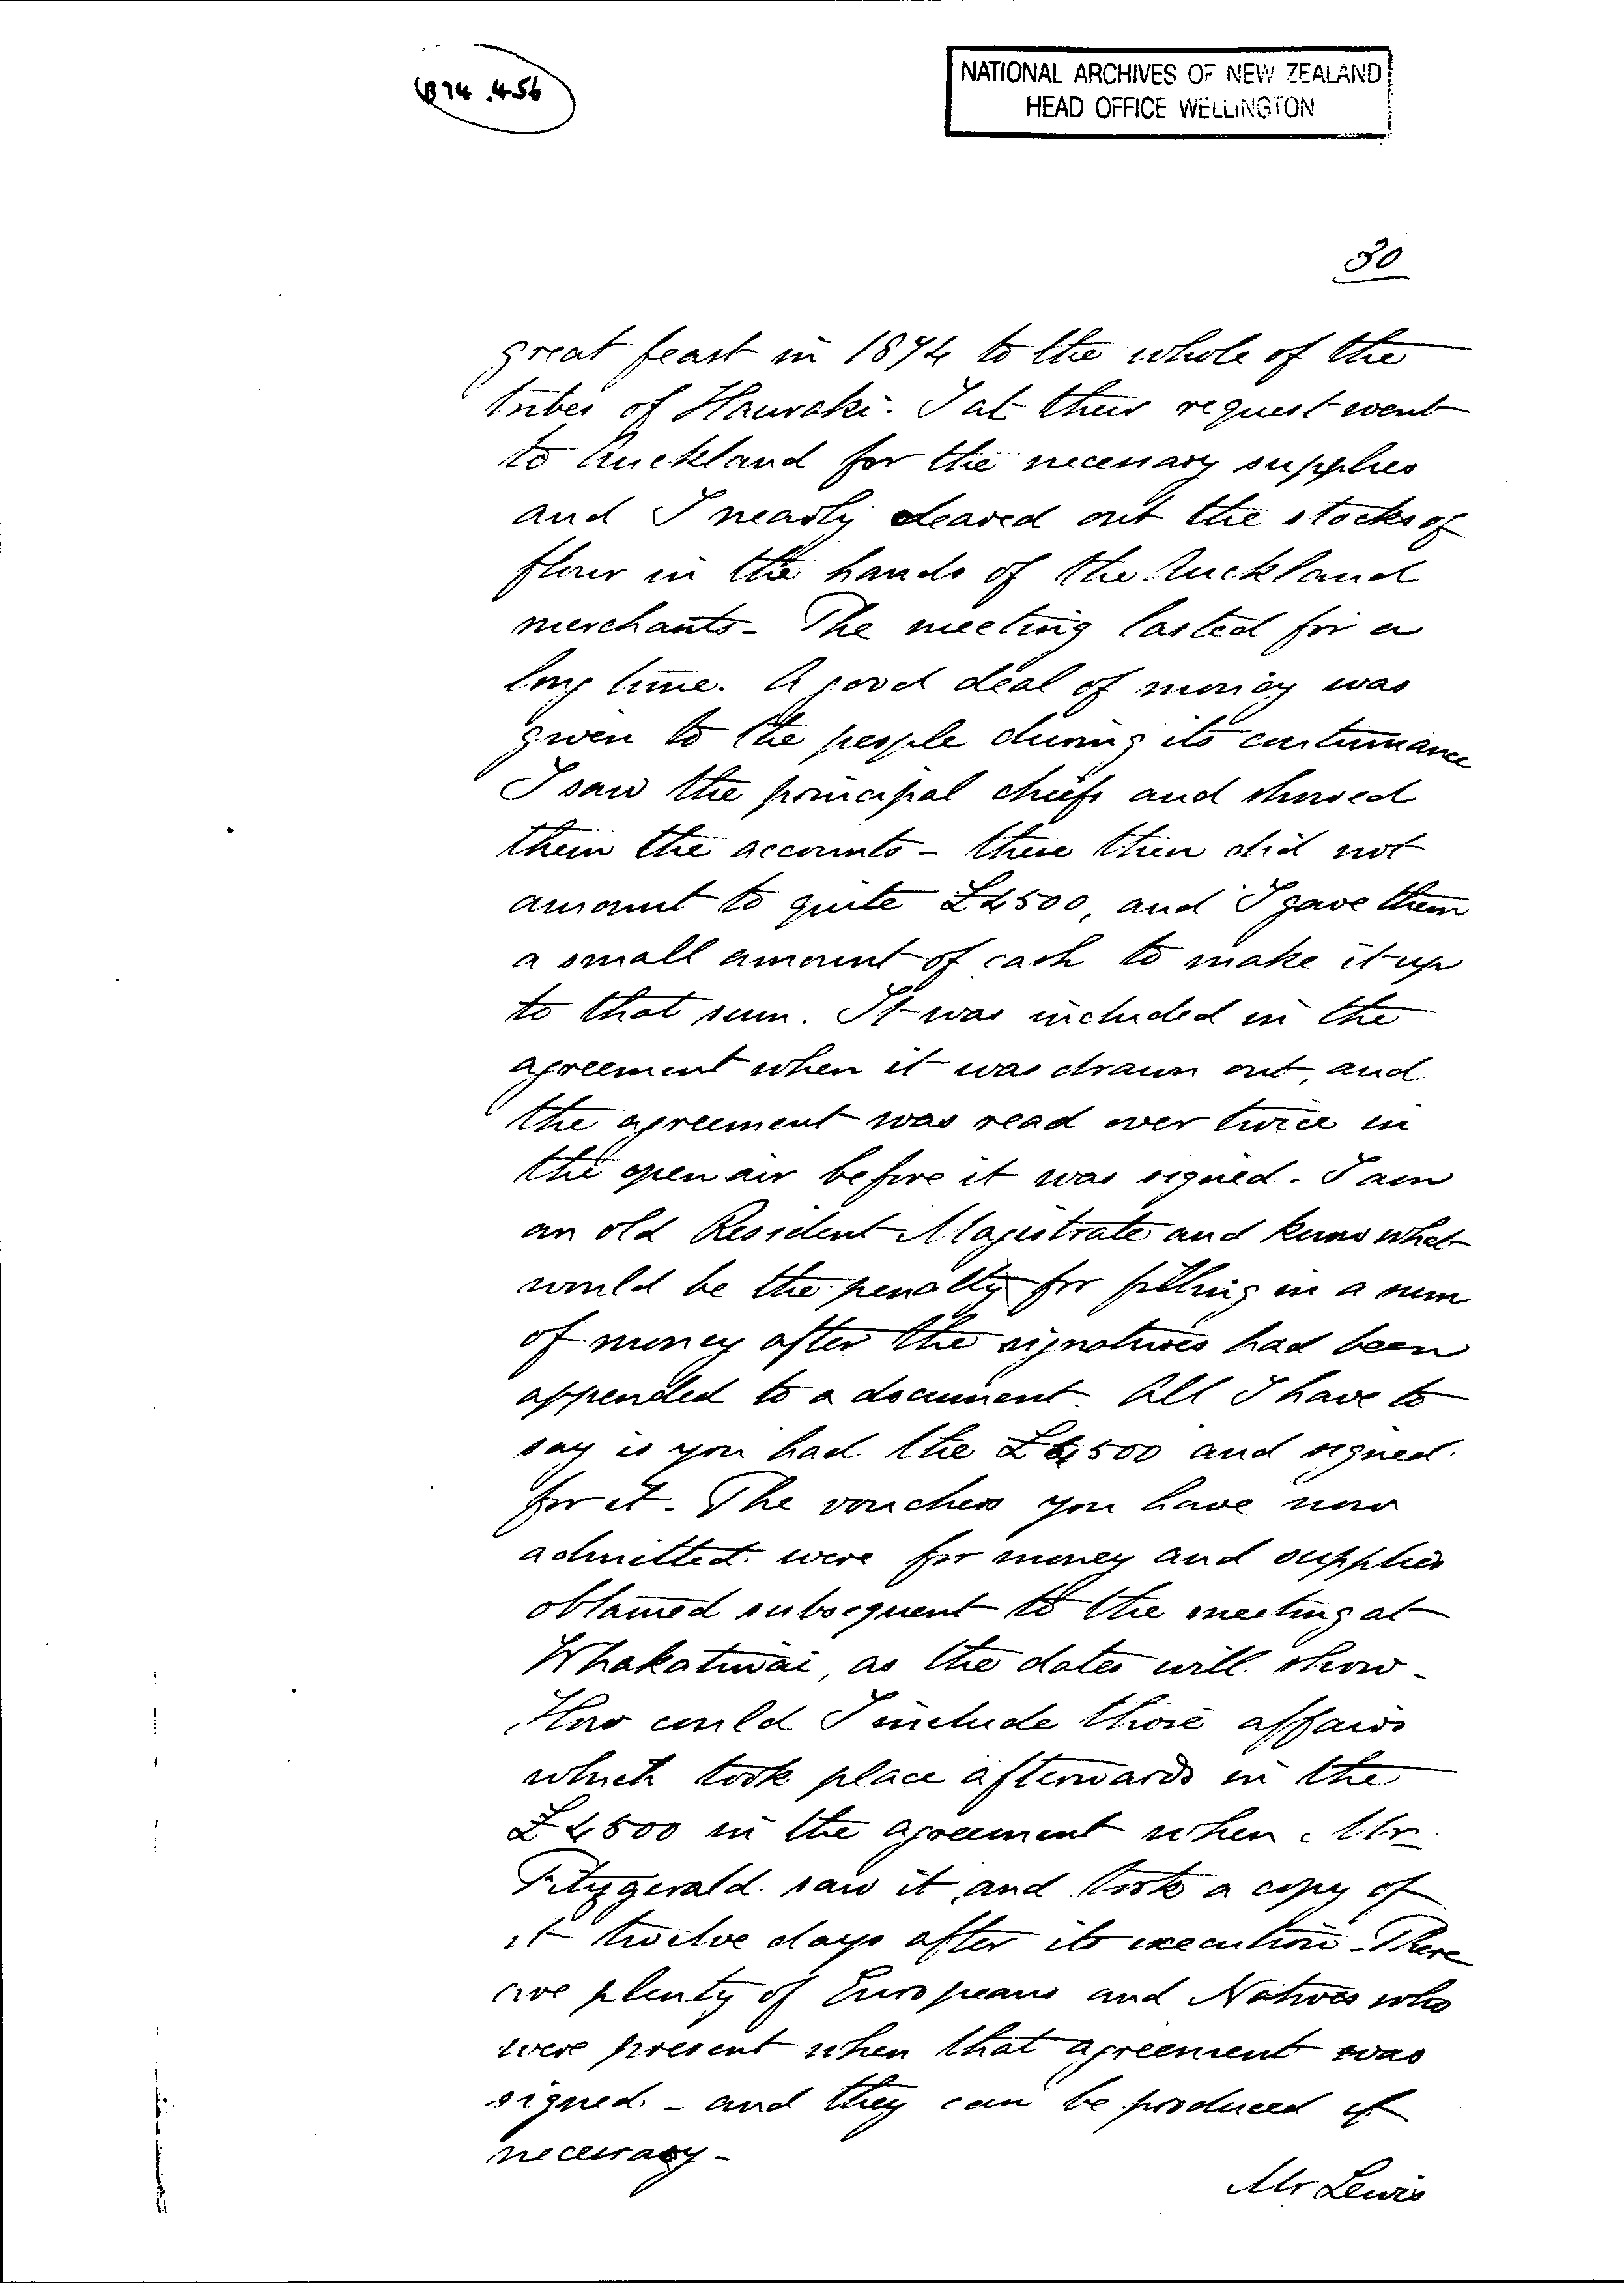 874.456
NATIONAL ARCHIVES OF NEW ZEALAND
HEAD OFFICE WELLINGTON
30
great feast in 1874 to the whole of the
tribes of Hauraki. I at their request went
to Auckland for the necessary supplies
and I nearly cleared out the stocks of
flour in the hands of the Auckland
merchants - The meeting lasted for a
long time. A good deal of money was
given to the people during its continuance
I saw the principal chiefs and showed
them the accounts - these then did not
amount to quite £4500, and I gave them
a small amount of cash to make it up
to that sum. It was included in the
agreement when it was drawn out, and
the agreement was read over twice in
the open air before it was signed. I am
an old Resident Magistrate and know what
would be the penalty for filling in a sum
of money after the signatures had been
appended to a document. All I have to
say is you had the £4500 and signed
for it. The vouchers you have now
admitted were for money and supplies
obtained subsequent to the meeting at
Whakatiwai, as the dates will show -
How could I include those affairs
which took place afterwards in the
£4500 in the agreement when Mr
Fitzgerald saw it and took a copy of
it twelve days after its execution - There
are plenty of Europeans and Natives who
were present when that agreement was
signed - and they can be produced if
necessary -
Mr Lewis